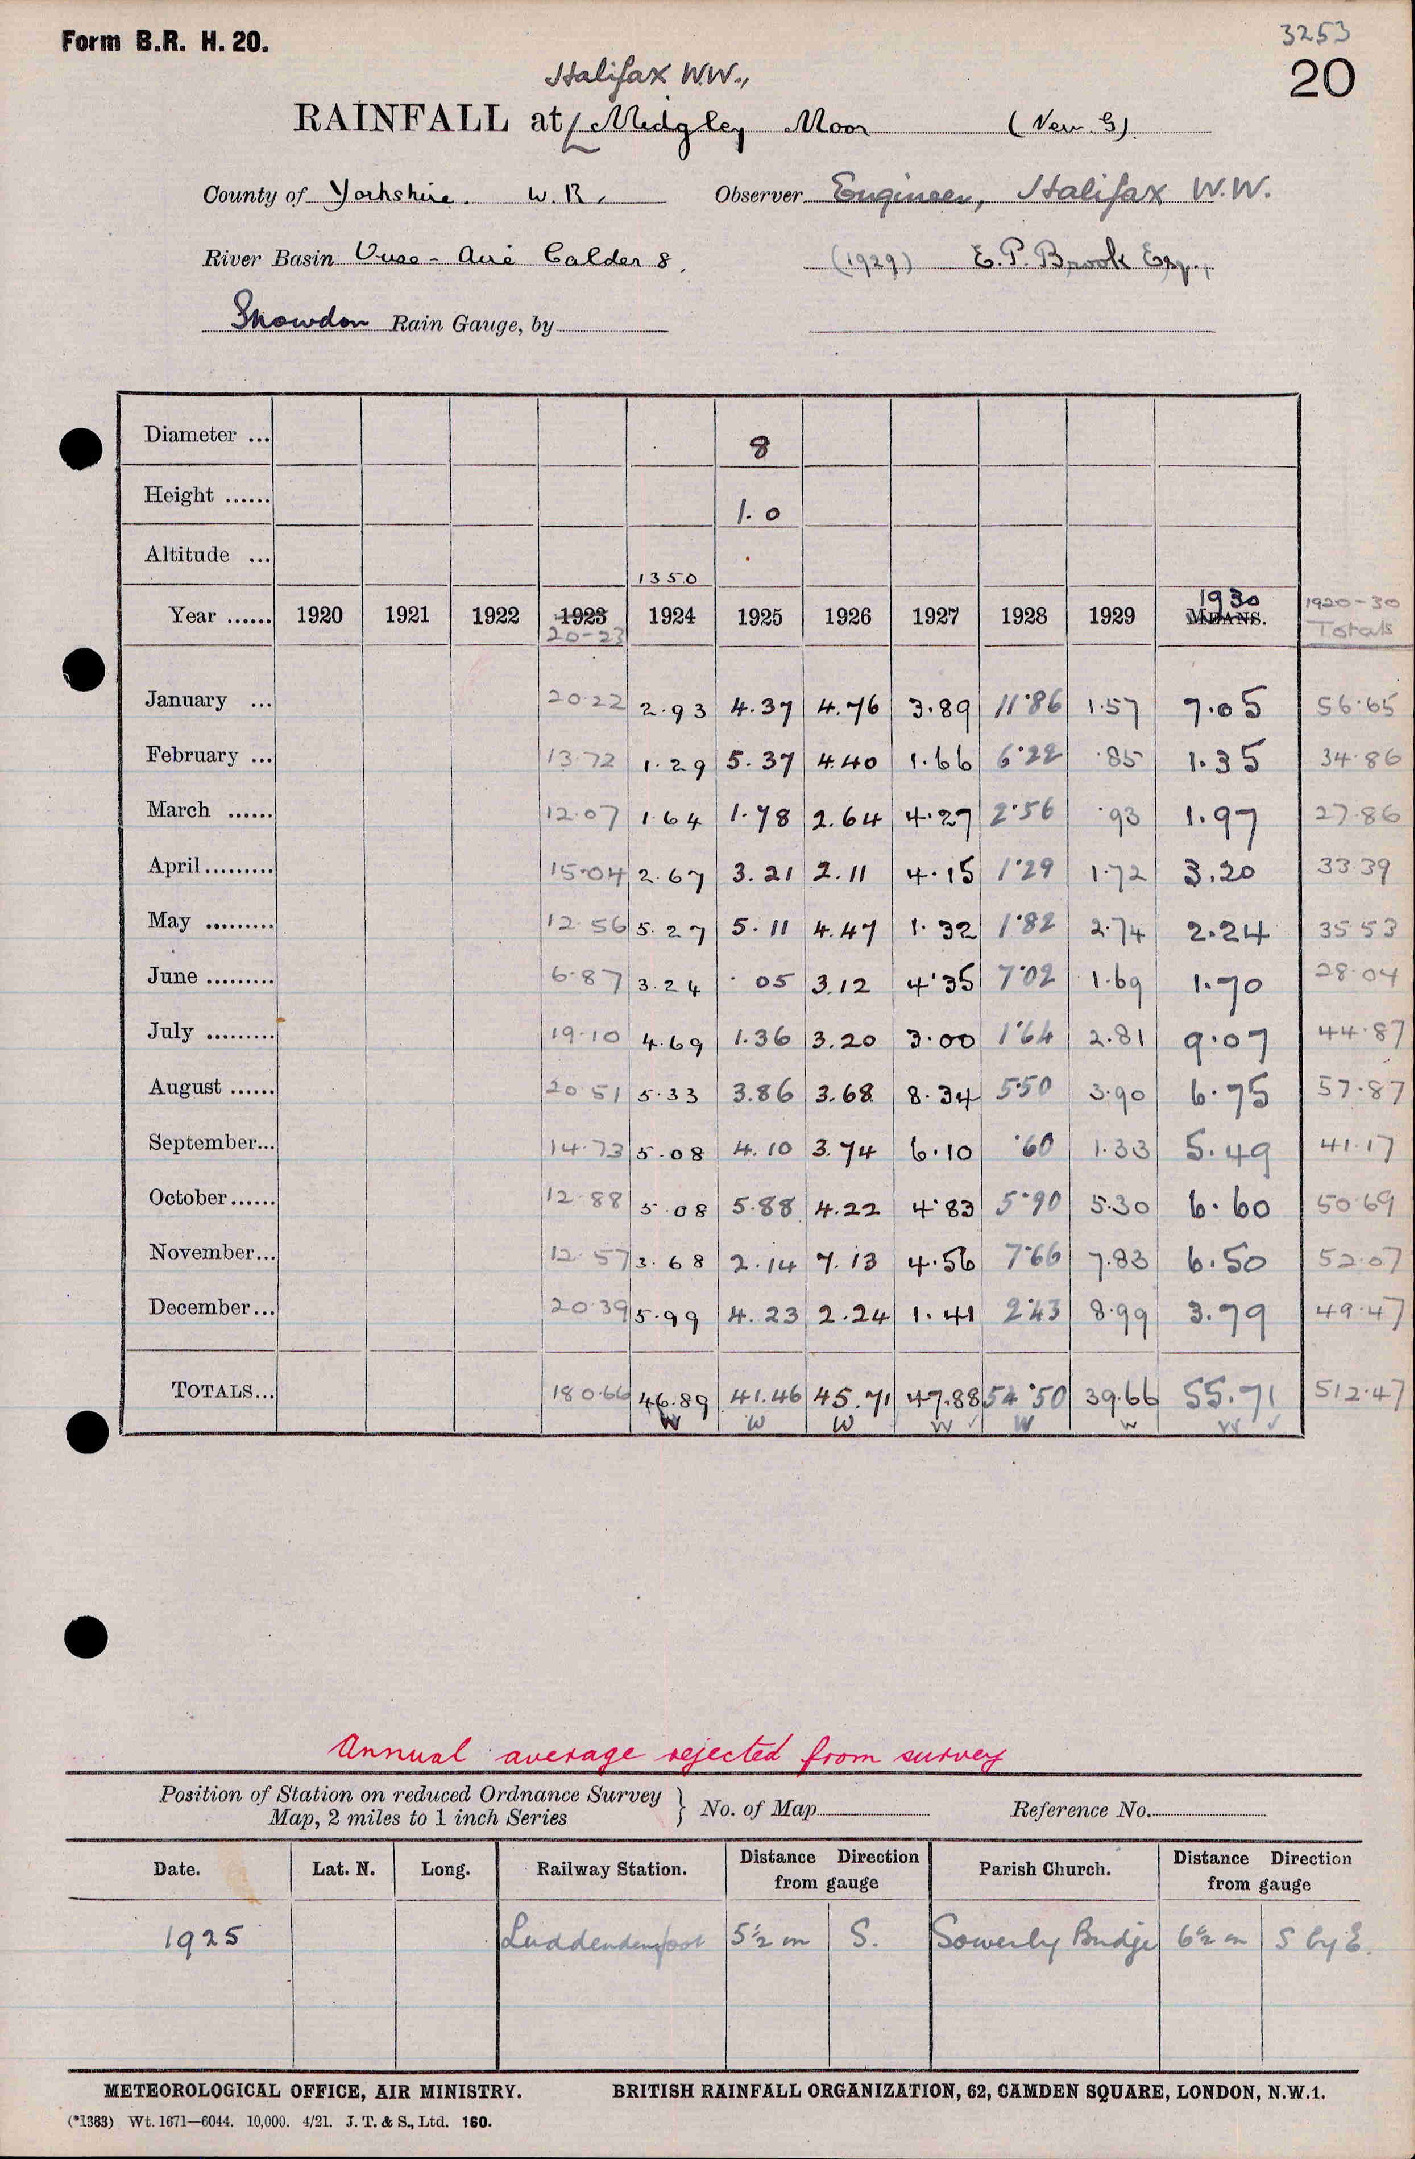 Form B.R. H. 20.
3253
20
Halifax W.W.,
RAINFALL at Midgley Moor (New G)
County of Yorkshire. W.R. Observer Engineer, Halifax W.W.
River Basin Ouse - Aire Calder 8. (1929) E.P. Brook Esq.,
Snowdon Rain Gauge, by
Diameter ... 8
Height ...... 1.0
Altitude ... 1350
Year ...... 1920 1921 1922 1923 20-23 1924 1925 1926 1927 1928 1929 MEANS. 1930 1920-30 Totals
January ... 20.22 2.93 4.37 4.76 3.89 11.86 1.57 7.05 56.65
February ... 13.72 1.29 5.37 4.40 1.66 6.22 .85 1.35 34.86
March ...... 12.07 1.64 1.78 2.64 4.27 2.56 .93 1.97 27.86
April ......... 15.04 2.67 3.21 2.11 4.15 1.29 1.72 3.20 33.39
May ......... 12.56 5.27 5.11 4.47 1.32 1.82 2.74 2.24 35.53
June ......... 6.87 3.24 .05 3.12 4.35 7.02 1.69 1.70 28.04
July ......... 19.10 4.69 1.36 3.20 3.00 1.64 2.81 9.07 44.87
August ...... 20.51 5.33 3.86 3.68 8.34 5.50 3.90 6.75 57.87
September... 14.73 5.08 4.10 3.74 6.10 .60 1.33 5.49 41.17
October ...... 12.88 5.08 5.88 4.22 4.83 5.90 5.30 6.60 50.69
November... 12.57 3.68 2.14 7.13 4.56 7.66 7.83 6.50 52.07
December... 20.39 5.99 4.23 2.24 1.41 2.43 8.99 3.79 49.47
TOTALS... 180.66 46.89 41.46 45.71 47.88 54.50 39.66 55.71 512.47
W W W W ✓ W W W ✓
Annual average rejected from survey
Position of Station on reduced Ordnance Survey
Map, 2 miles to 1 inch Series } No. of Map Reference No.
Date. Lat. N. Long. Railway Station. Distance Direction from gauge Parish Church. Distance Direction from gauge
1925 Luddendenfoot 5½ m S. Sowerby Bridge 6½ m S by E.
METEOROLOGICAL OFFICE, AIR MINISTRY. BRITISH RAINFALL ORGANIZATION, 62, CAMDEN SQUARE, LONDON, N.W.1.
(*1383) Wt. 1671—6044. 10,000. 4/21. J. T. & S., Ltd. 160.